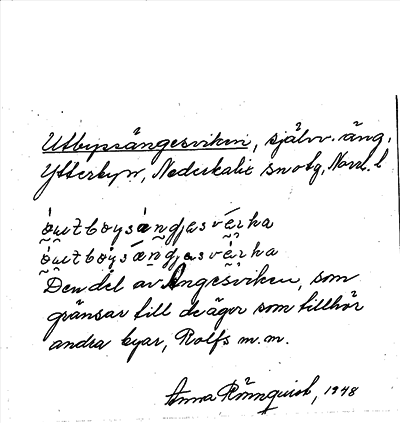 Utbysängesviken, självv. äng,
Ytterbyn, Nederkalix snotg, Norrb. l
òutboysàngjasvérka
òutboysàngjasvérka
Den del av Angesviken, som
gränsar till deäger som tillhör
andra byar, Rolfs m.m.
Anna Rönnquist, 1948